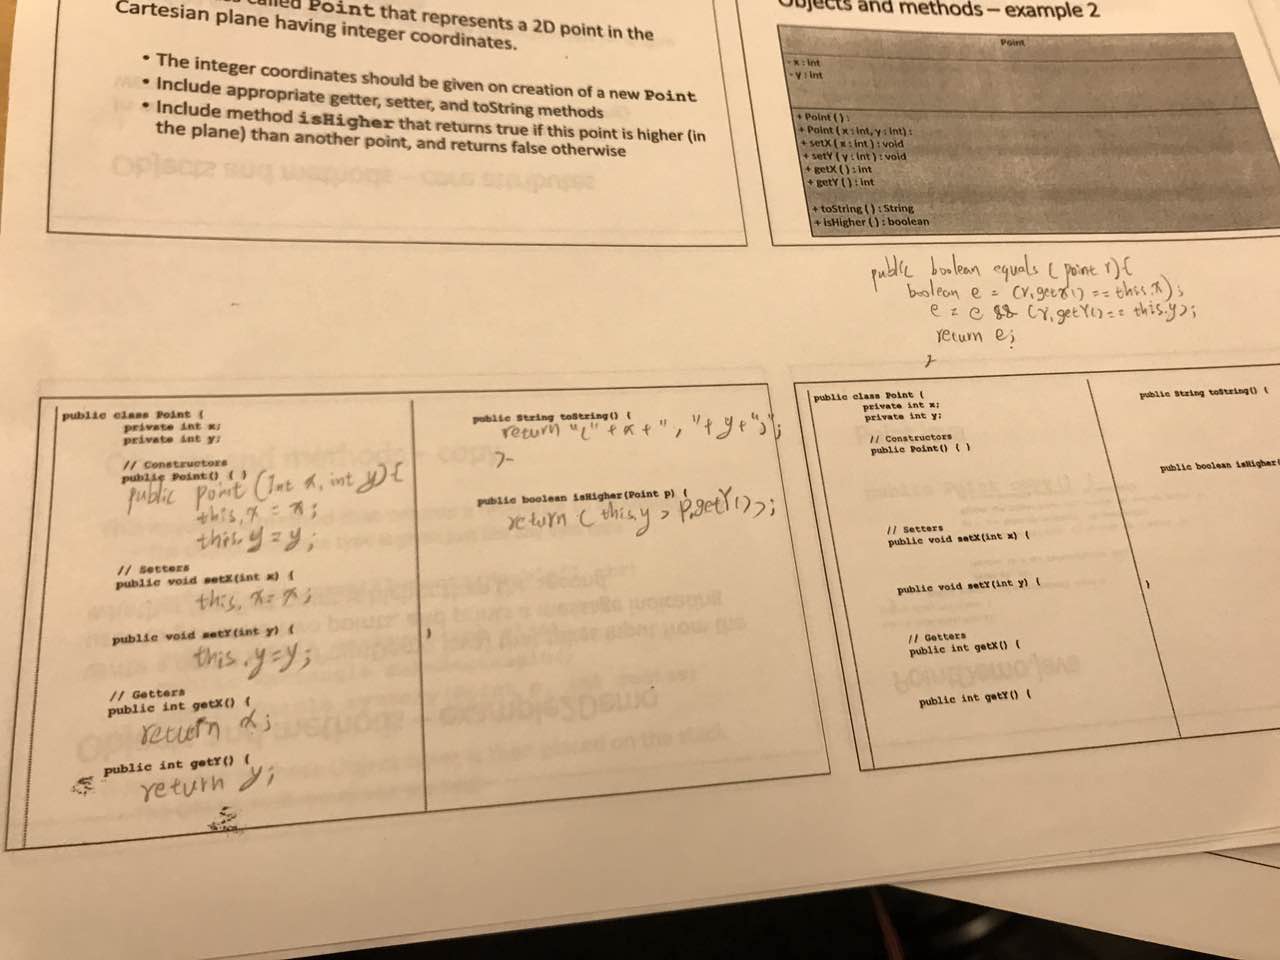 called Point that represents a 2D point in the
Cartesian plane having integer coordinates.
• The integer coordinates should be given on creation of a new Point
• Include appropriate getter, setter, and toString methods
• Include method isHigher that returns true if this point is higher (in
the plane) than another point, and returns false otherwise
Objects and methods – example 2
Point
- x : int
- y : int
+ Point ( ) :
+ Point ( x : int, y : int) :
+ setX ( x : int ) : void
+ setY ( y : int ) : void
+ getX ( ) : int
+ getY ( ) : int
+ toString ( ) : String
+ isHigher ( ) : boolean
public boolean equals (point r){
boolean e = (r.getX() == this.x);
e = e && (r.getY() == this.y);
return e;
}
public class Point {
private int x;
private int y;
// Constructors
public Point() { }
public point (Int x, int y){
this.x = x;
this.y = y;
// Setters
public void setX(int x) {
this.x = x;
public void setY(int y) {
this.y=y;
// Getters
public int getX() {
return x;
public int getY() {
return y;
public String toString() {
return "(" + x + ", " + y + ")";
}
public boolean isHigher(Point p) {
return ( this.y > p.getY());
}
public class Point {
private int x;
private int y;
// Constructors
public Point() { }
// Setters
public void setX(int x) {
public void setY(int y) {
// Getters
public int getX() {
public int getY() {
public String toString() {
public boolean isHigher(
}